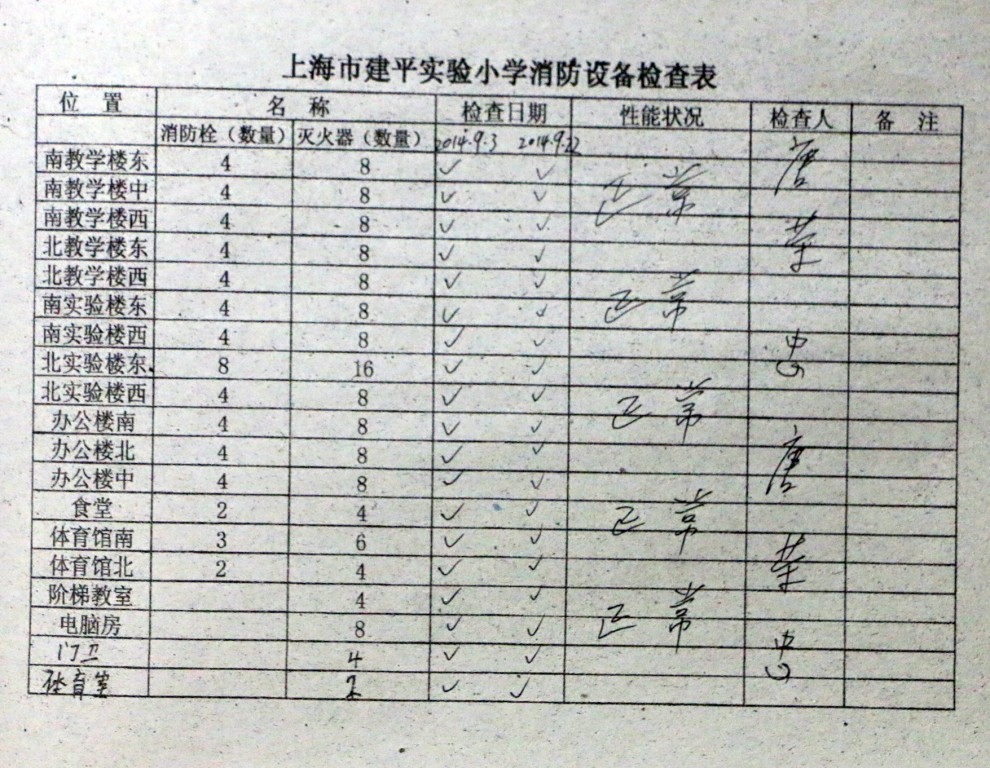 上海市建平实验小学消防设备检查表
位 置 名 称 检查日期 性能状况 检查人 备 注
消防栓（数量） 灭火器（数量） 2014.9.3 2014.9.22
南教学楼东 4 8 ✓ ✓
南教学楼中 4 8 ✓ ✓ 正常
南教学楼西 4 8 ✓ ✓
北教学楼东 4 8 ✓ ✓
北教学楼西 4 8 ✓ ✓
南实验楼东 4 8 ✓ ✓ 正常
南实验楼西 4 8 ✓ ✓
北实验楼东 8 16 ✓ ✓
北实验楼西 4 8 ✓ ✓
办公楼南 4 8 ✓ ✓ 正常
办公楼北 4 8 ✓ ✓
办公楼中 4 8 ✓ ✓ 唐
食堂 2 4 ✓ ✓
体育馆南 3 6 ✓ ✓ 正常
体育馆北 2 4 ✓ ✓
阶梯教室 4 ✓ ✓
电脑房 8 ✓ ✓ 正常
门卫 4 ✓ ✓
体育室 2 ✓ ✓